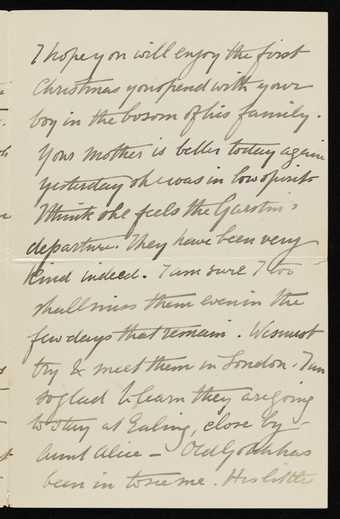 I hope you will enjoy the first
Christmas you spend with your
boy in the bosom of his family.
Your Mother is better today again
yesterday she was in low spirits
I think she feels the Garstin's
departure. They have been very
kind indeed. I am sure I too
shall miss them even in the
few days that remain. We must
try & meet them in London. I am
so glad to learn they are going
to stay at Ealing, close by
Aunt Alice — Old has
been in to see me. His little